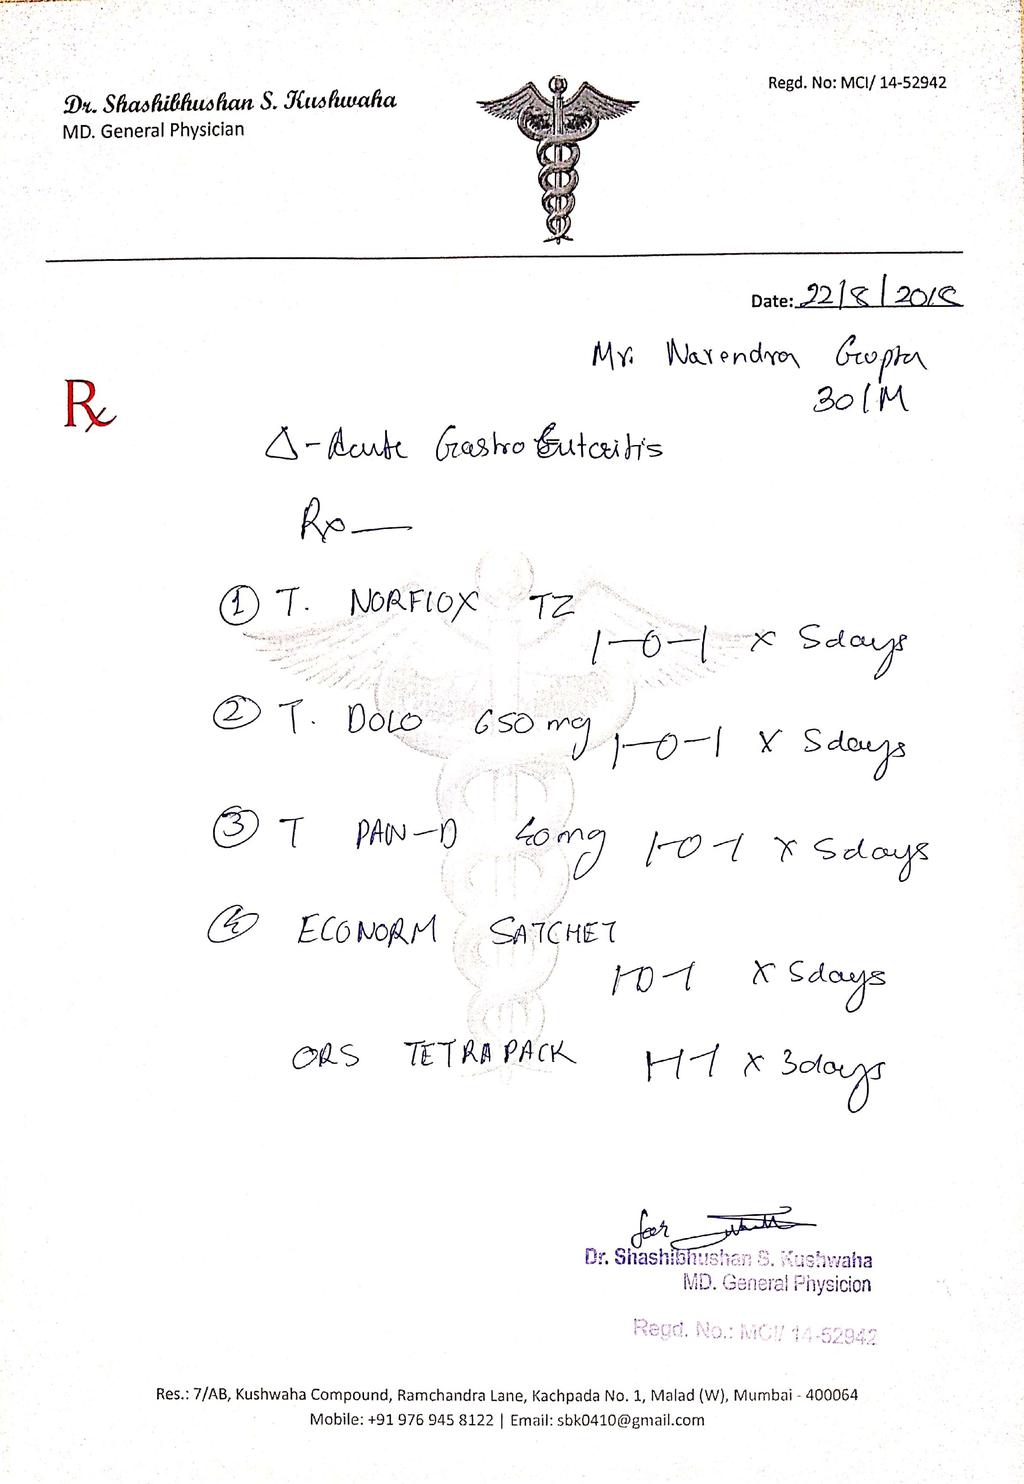 Dr. Shashibhushan S. Kushwaha
MD. General Physician
Regd. No: MCI/ 14-52942
Date: 22/8/2018
Mr. Narendra Gupta
30/M
Rx
Δ - Acute Gastro Enteritis
Rx —
① T. NORFLOX TZ
1-0-1 x 5days
② T. DOLO 650 mg 1-0-1 x 5days
③ T PAN-D 40mg 1-0-1 x 5days
④ ECONORM SATCHET
1-0-1 x 5days
ORS TETRA PACK 1-1-1 x 3days
for
Dr. Shashibhushan S. Kushwaha
MD. General Physicion
Regd. No.: MCI/ 14-52942
Res.: 7/AB, Kushwaha Compound, Ramchandra Lane, Kachpada No. 1, Malad (W), Mumbai - 400064
Mobile: +91 976 945 8122 | Email: sbk0410@gmail.com